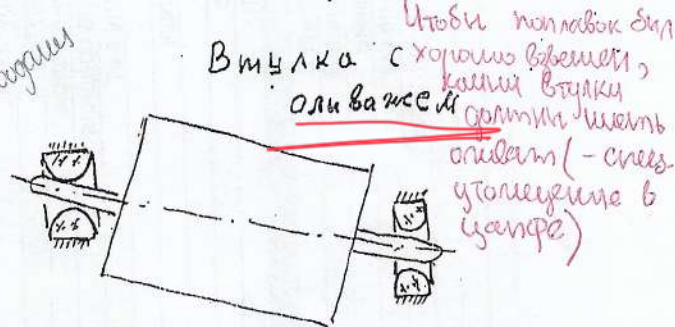 Втулка с
оливажем
Чтобы поплавок был
хорошо взвешен,
камни втулки
должны иметь
оливаж (- спец.
утолщение в
цапфе)